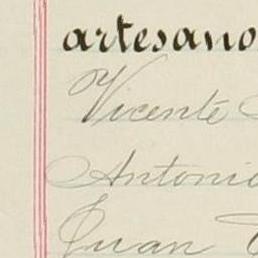 artesano
Vicente
Antonio
Juan